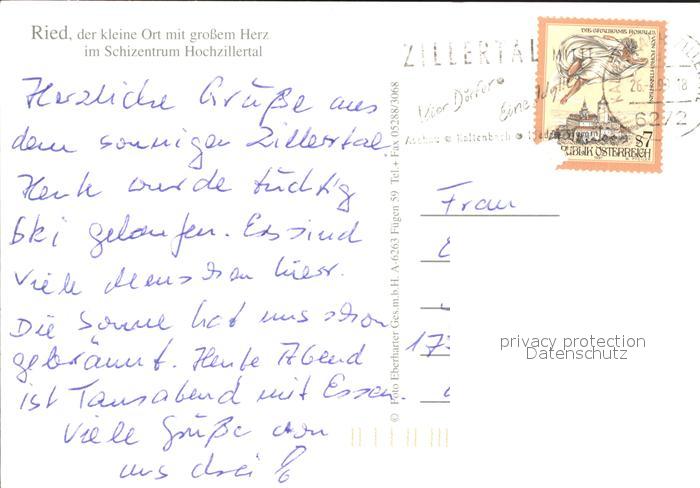 Ried, der kleine Ort mit großem Herz
im Schizentrum Hochzillertal
Herzliche Grüße aus
dem sonnigen Zillertal
Heute wurde tüchtig
Ski gelaufen. Es sind
viele Menschen hier.
Die Sonne hat uns schon
gebräunt. Heute Abend
ist Tanzabend mit Essen.
Viele Grüße von
uns drei
© Foto Eberharter Ges.m.b.H. A-6263 Fügen 59 Tel.+Fax 05288/3068
ZILLERTAL
Vier Dörfer
Eine Idylle
Aschau Kaltenbach
DIE GRAUSAME ROSALIA VON FORCHTENSTEIN
6272
S7
PUBLIK ÖSTERREICH
Frau
17
privacy protection
Datenschutz